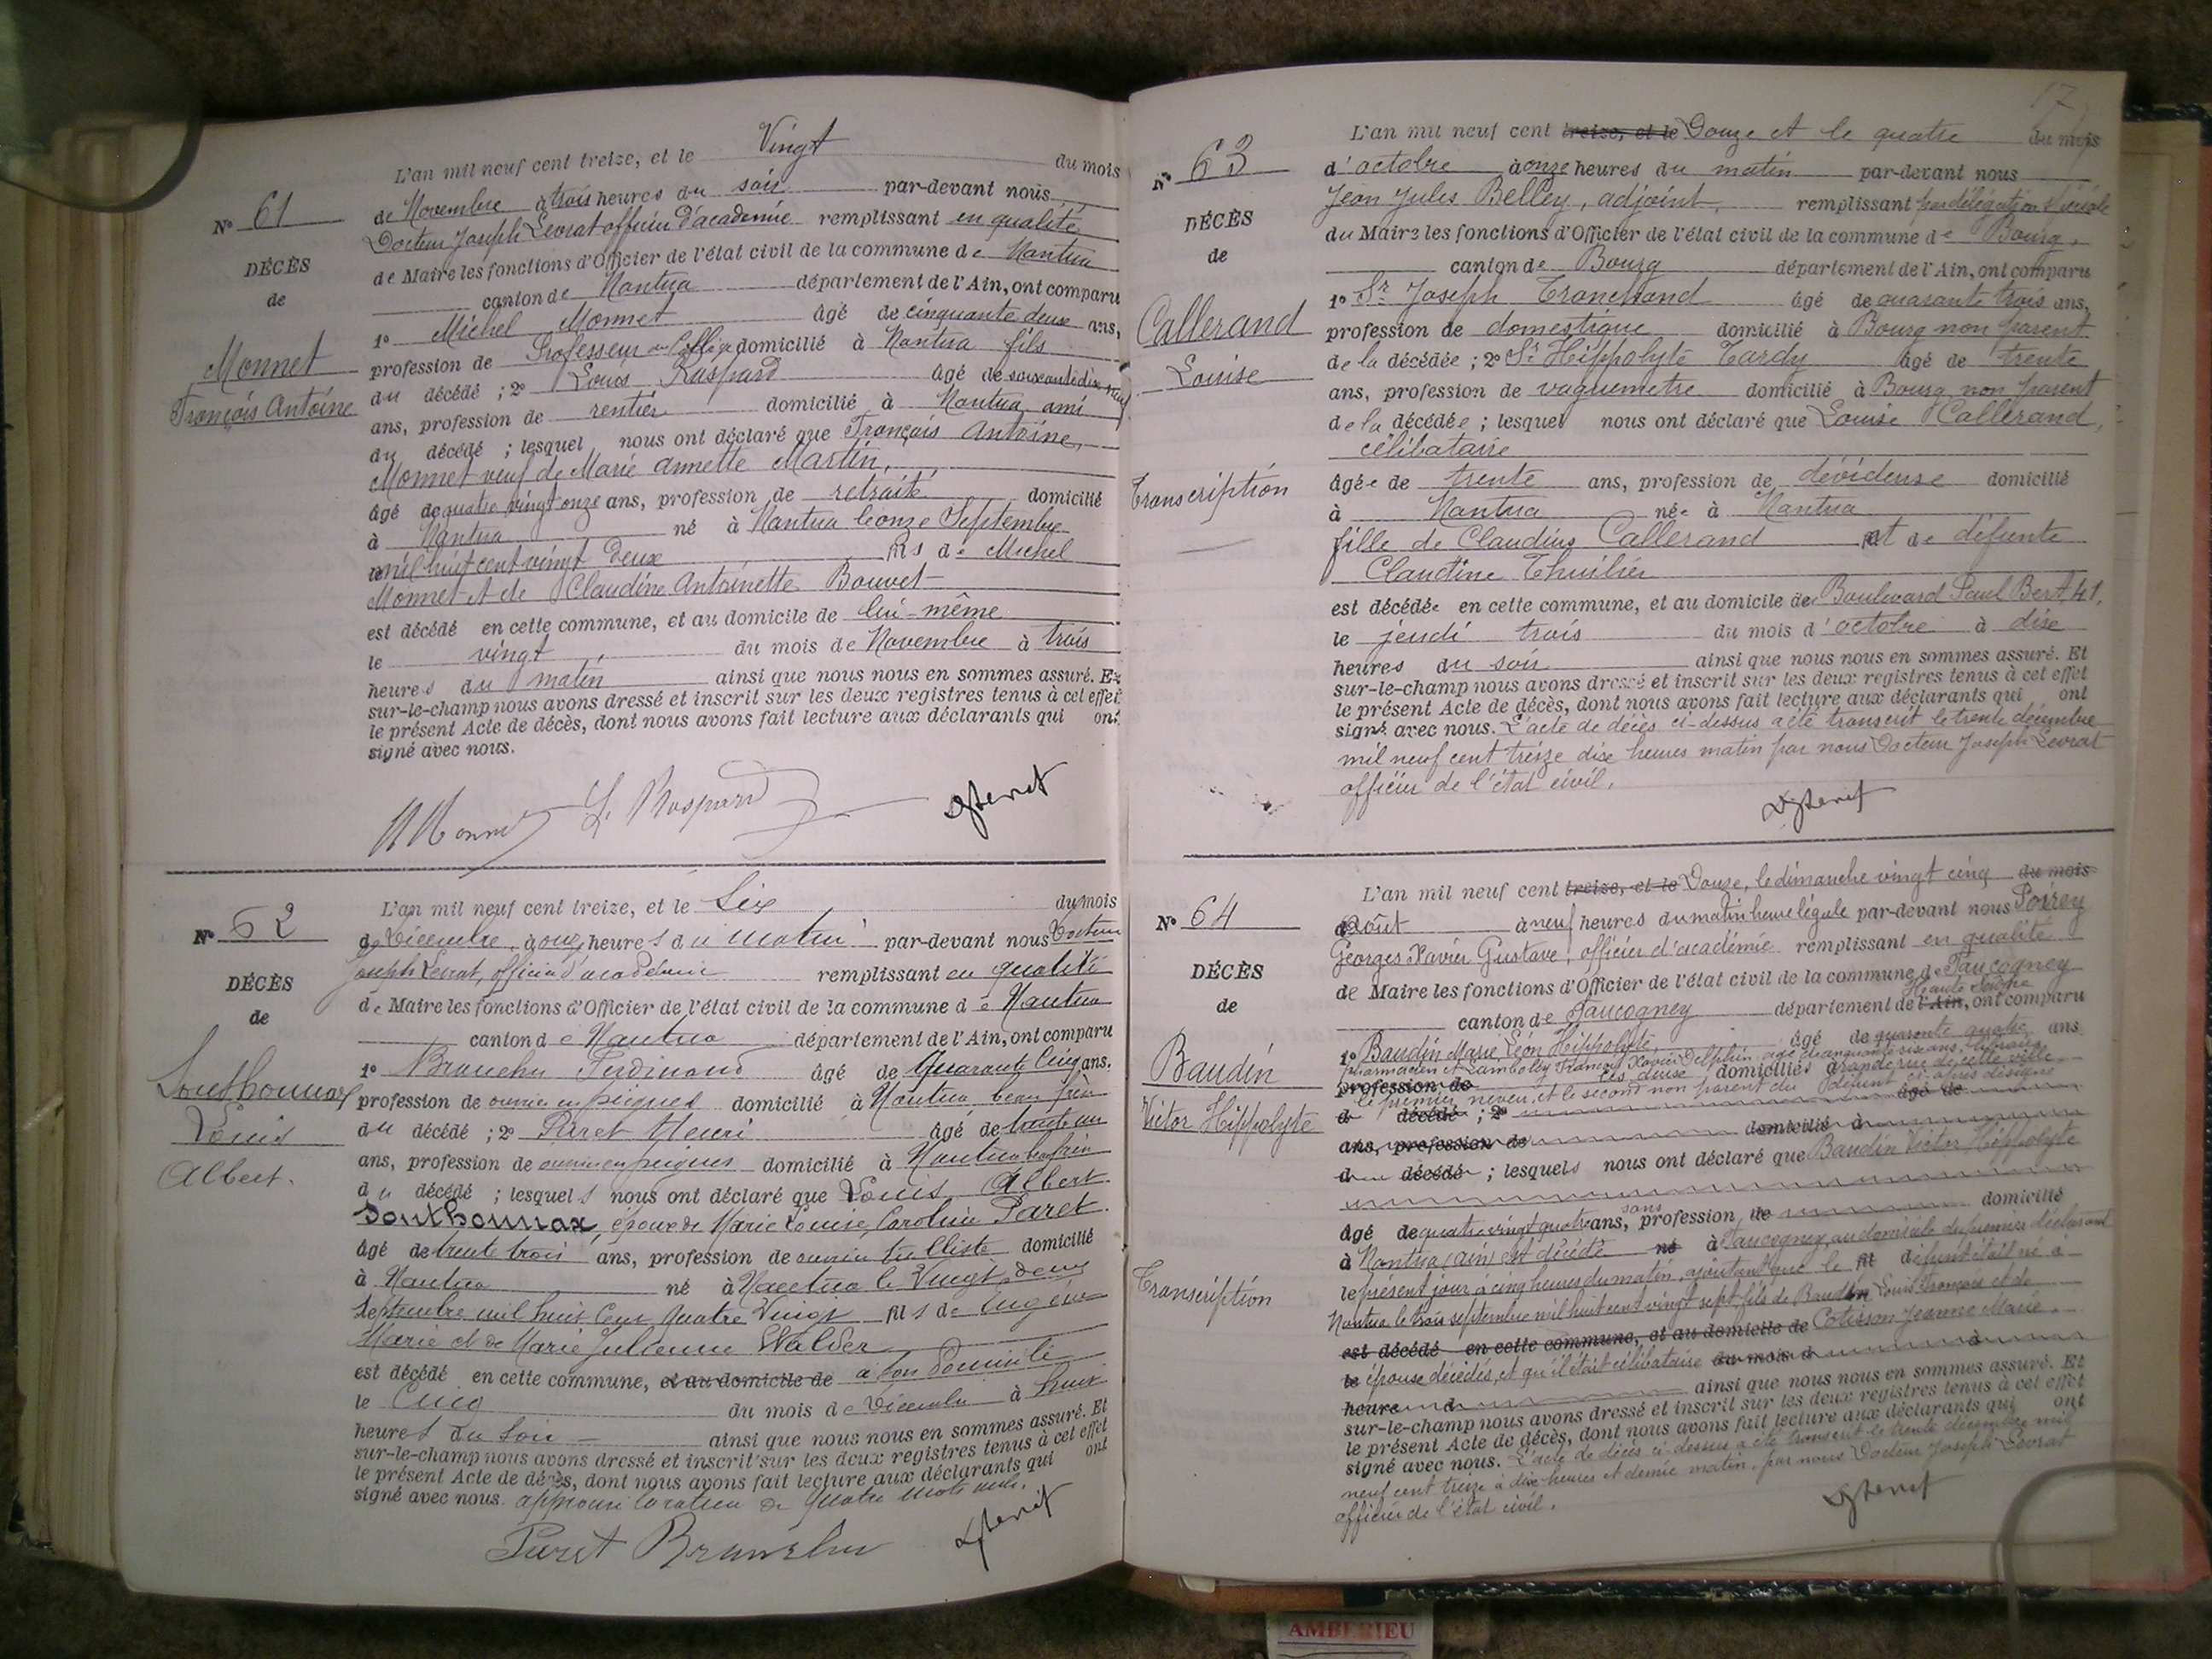 L'an mil neuf cent treize, et le Vingt du mois
N° 61
de Novembre à trois heures du soir par-devant nous
Docteur Joseph Levrat officier d'académie remplissant en qualité
DÉCÈS
de Maire les fonctions d'Officier de l'état civil de la commune de Nantua
de
canton de Nantua département de l'Ain, ont comparu
1° Michel Monnet âgé de cinquante deux ans,
Monnet
profession de Professeur au Collège domicilié à Nantua fils
François Antoine
du décédé ; 2° Louis Raspard âgé de soixante dix neuf
ans, profession de rentier domicilié à Nantua ami
du décédé ; lesquel nous ont déclaré que François Antoine,
Monnet veuf de Marie Annette Martin,
âgé de quatre vingt onze ans, profession de retraité domicilié
à Nantua né à Nantua le onze Septembre
mil huit cent vingt deux fils de Michel
Monnet et de Claudine Antoinette Bouvet
est décédé en cette commune, et au domicile de lui-même
le vingt du mois de Novembre à trois
heures du matin ainsi que nous nous en sommes assuré. Et
sur-le-champ nous avons dressé et inscrit sur les deux registres tenus à cet effet
le présent Acte de décès, dont nous avons fait lecture aux déclarants qui ont
signé avec nous.
M Monnet L. Raspard
L'an mil neuf cent treize, et le Six du mois
N° 62
de Décembre à onze heures du matin par-devant nous Docteur
Joseph Levrat, officier d'académie remplissant en qualité
DÉCÈS
de Maire les fonctions d'Officier de l'état civil de la commune de Nantua
de
canton de Nantua département de l'Ain, ont comparu
1° Brunehu Ferdinand âgé de Quarante Cinq ans.
Southonnax
profession de ouvrier en peignes domicilié à Nantua beau frère
Louis
du décédé ; 2° Paret Henri âgé de trente un
Albert.
ans, profession de ouvrier en peignes domicilié à Nantua beau frère
du décédé ; lesquels nous ont déclaré que Louis Albert
Southonnax, époux de Marie Louise, Caroline Paret.
âgé de trente trois ans, profession de ouvrier tulliste domicilié
à Nantua né à Nantua le Vingt deux
Septembre mil huit Cent Quatre Vingt fils de Eugène
Marie et de Marie Julienne Walder
est décédé en cette commune, et au domicile de à son domicile
le Cinq du mois de Décembre à huit
heures du Soir ainsi que nous nous en sommes assuré. Et
sur-le-champ nous avons dressé et inscrit sur les deux registres tenus à cet effet
le présent Acte de décès, dont nous avons fait lecture aux déclarants qui ont
signé avec nous. approuvé la rature de quatre mots nuls.
Paret Brunehu
17
L'an mil neuf cent treize, et le Douze et le quatre du mois
N° 63
d'octobre à onze heures du matin par-devant nous
Jean Jules Belley, adjoint, remplissant par délégation spéciale
DÉCÈS
du Maire les fonctions d'Officier de l'état civil de la commune de Bourg,
de
canton de Bourg département de l'Ain, ont comparu
1° Sr Joseph Tranchand âgé de quarante trois ans,
Callerand
profession de domestique domicilié à Bourg non parent
Louise
de la décédée ; 2° Sr Hippolyte Tardy âgé de trente
ans, profession de vaguemetre domicilié à Bourg non parent
de la décédée ; lesquel nous ont déclaré que Louise Callerand,
célibataire
Transcription
âgée de trente ans, profession de dévideuse domicilié
à Nantua née à Nantua
fille de Claudius Callerand et de défunte
Claudine Thuilier
est décédée en cette commune, et au domicile de Boulevard Paul Bert, 41,
le jeudi trois du mois d'octobre à dix
heures du soir ainsi que nous nous en sommes assuré. Et
sur-le-champ nous avons dressé et inscrit sur les deux registres tenus à cet effet
le présent Acte de décès, dont nous avons fait lecture aux déclarants qui ont
signé avec nous. L'acte de décès ci-dessus a été transcrit le trente décembre
mil neuf cent treize dix heures matin par nous Docteur Joseph Levrat
officier de l'état civil.
L'an mil neuf cent treize, et le Douze, le dimanche vingt cinq du mois
N° 64
d'Août à neuf heures du matin heure légale par-devant nous Poirey
Georges Xavier Gustave, officier d'académie remplissant en qualité
DÉCÈS
de Maire les fonctions d'Officier de l'état civil de la commune de Faucogney
de
canton de Faucogney département de l'Ain, Haute Saône ont comparu
1° Baudin Marie Léon Hippolyte, âgé de quarante quatre ans
Baudin
pharmacien et Lamboley François Xavier Delphin, âgé de cinquante six ans, libraire
profession de les deux domiciliés grande rue de cette ville,
le premier, neveu, et le second non parent du défunt ci-après désigné
Victor Hippolyte
d décédé ; 2° âgé de
ans, profession de domicilié à
d décédé ; lesquels nous ont déclaré que Baudin Victor Hippolyte
âgé de quatre vingt quatre ans, sans profession, de domicilié
à Nantua (Ain) est décédé né à Faucogney, au domicile du premier déclarant
Transcription
le présent jour à cinq heures du matin, ajoutant que le défunt était né à
Nantua le trois septembre mil huit cent vingt sept fils de Baudin Louis François et de
est décédé en cette commune, et au domicile de Cotisson Jeanne Marie.
le épouse décédés, et qu'il était célibataire du mois d à
heure d ainsi que nous nous en sommes assuré. Et
sur-le-champ nous avons dressé et inscrit sur les deux registres tenus à cet effet
le présent Acte de décès, dont nous avons fait lecture aux déclarants qui ont
signé avec nous. L'acte de décès ci-dessus a été transcrit le trente décembre mil
neuf cent treize à dix heures et demie matin, par nous Docteur Joseph Levrat
officier de l'état civil.
AMBERIEU